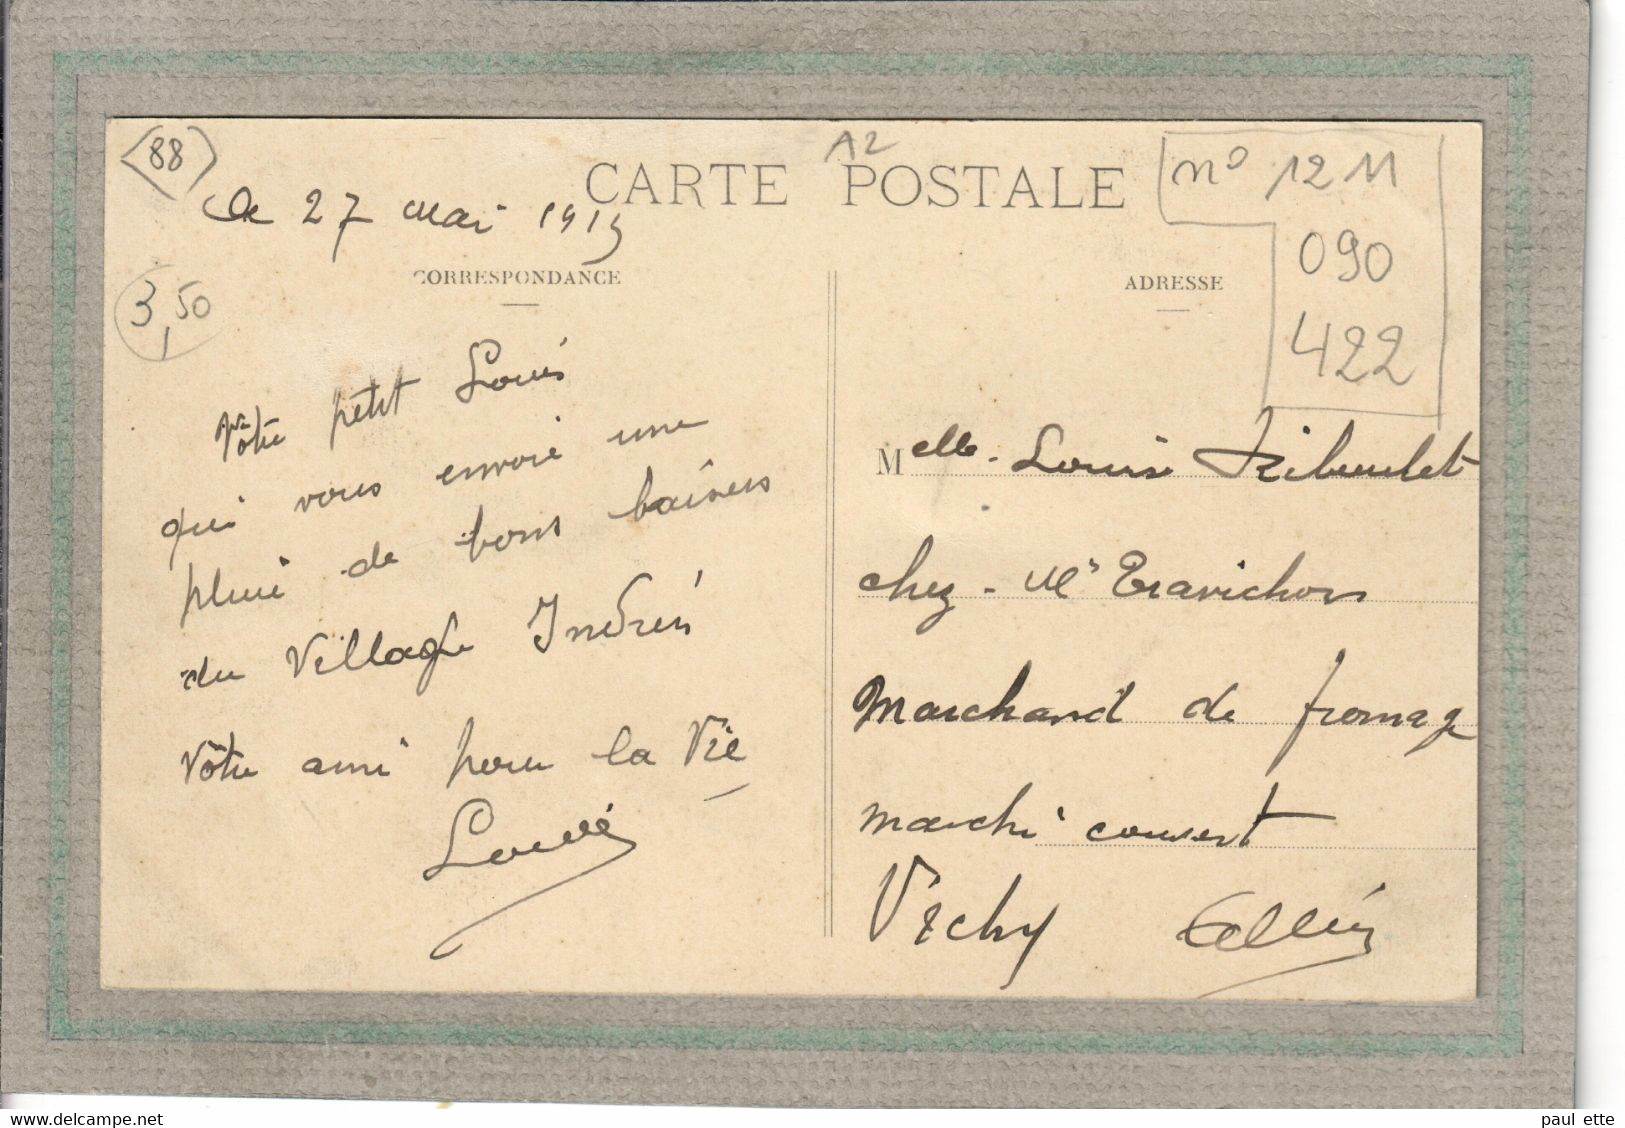 (88)
CARTE POSTALE
A2
nº 1211
090
422
le 27 mai 1913
CORRESPONDANCE
3,50
Vôtre petit Louis
qui vous envoie une
pluie de bons baisers
du Village
Vôtre ami pour la Vie
Louis
ADRESSE
Melle. Louise
chez - Mr
Marchand de fromage
marché couvert
Vichy Allier
delcampe.net
paul ette